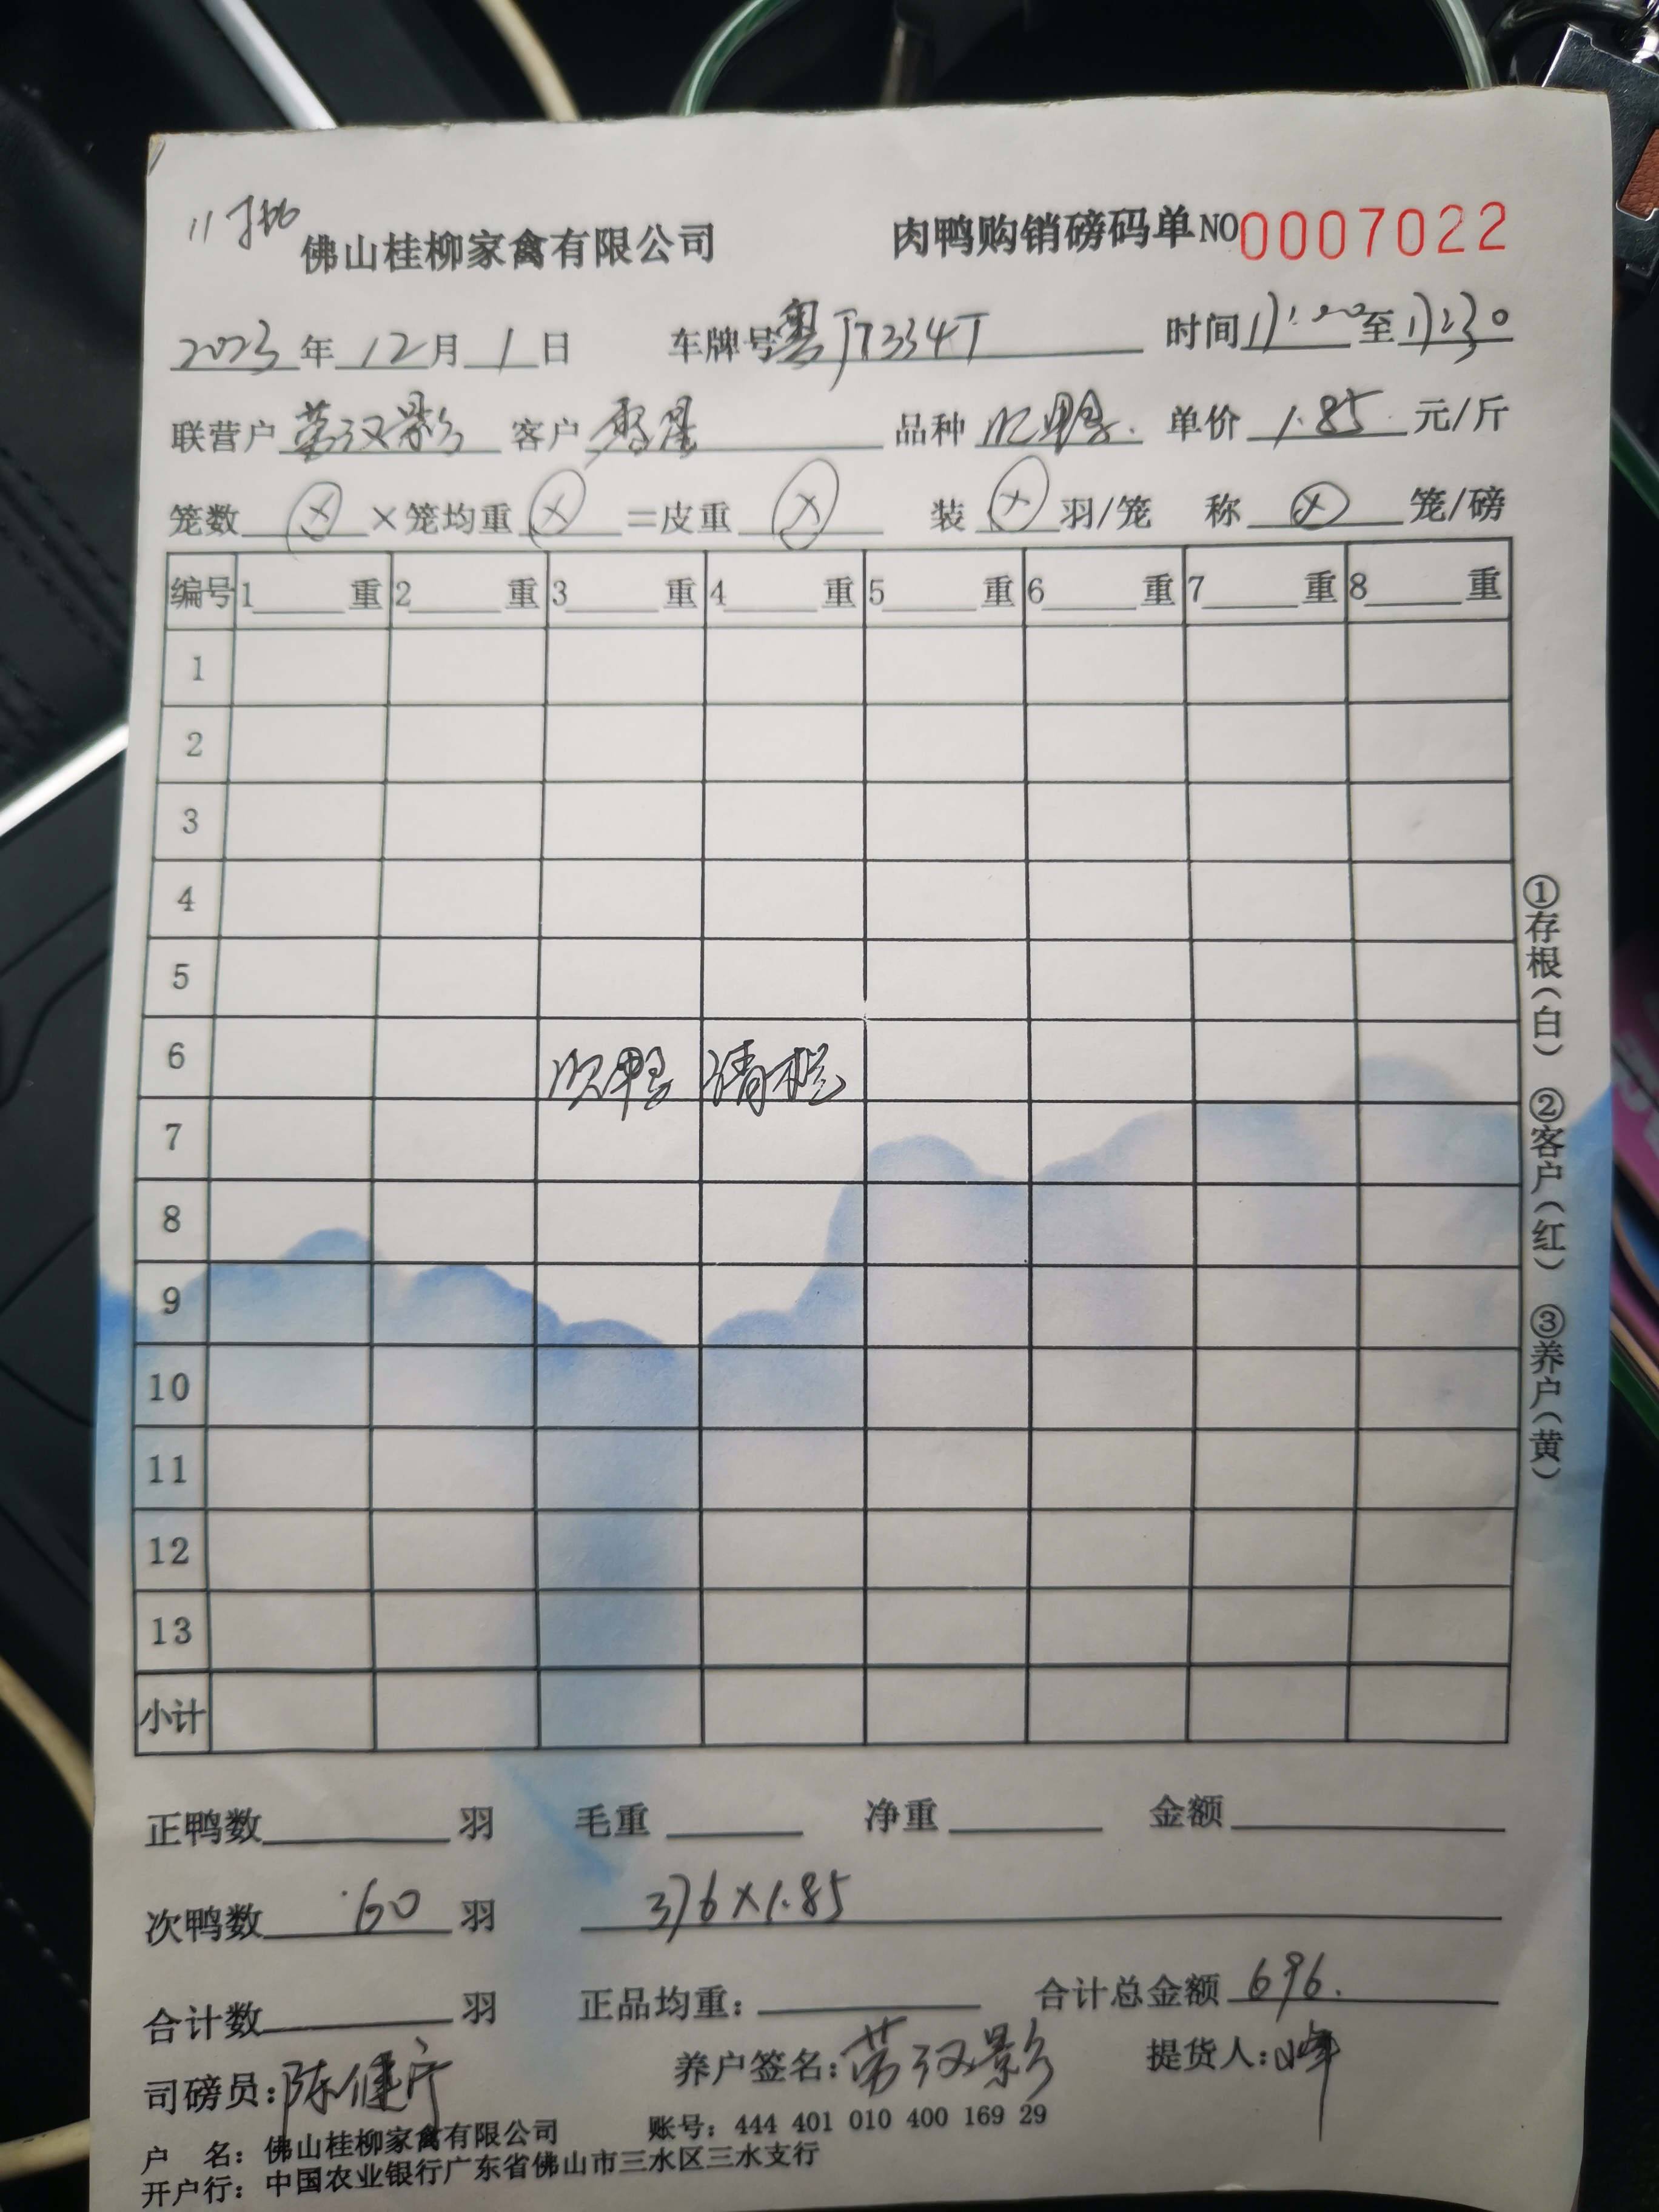 佛山桂柳家禽有限公司 肉鸭购销磅码单 NO 0007022
2023年12月1日 车牌号粤JT334T 时间11:00至11:30
联营户 劳汉影 客户 品种 次鸭. 单价 1.85 元/斤
笼数 ⊗ ×笼均重 ⊗ =皮重 ⊗ 装 ⊗ 羽/笼 称 ⊗ 笼/磅
编号 1 重 2 重 3 重 4 重 5 重 6 重 7 重 8 重
1
2
3
4
5
6 次鸭 清栏
7
8
9
10
11
12
13
小计
①存根(白) ②客户(红) ③养户(黄)
正鸭数 羽 毛重 净重 金额
次鸭数 60 羽 376×1.85
合计数 羽 正品均重: 合计总金额 696.
司磅员: 陈健 养户签名: 劳汉影 提货人: 峰
户 名: 佛山桂柳家禽有限公司 账号: 444 401 010 400 169 29
开户行: 中国农业银行广东省佛山市三水区三水支行